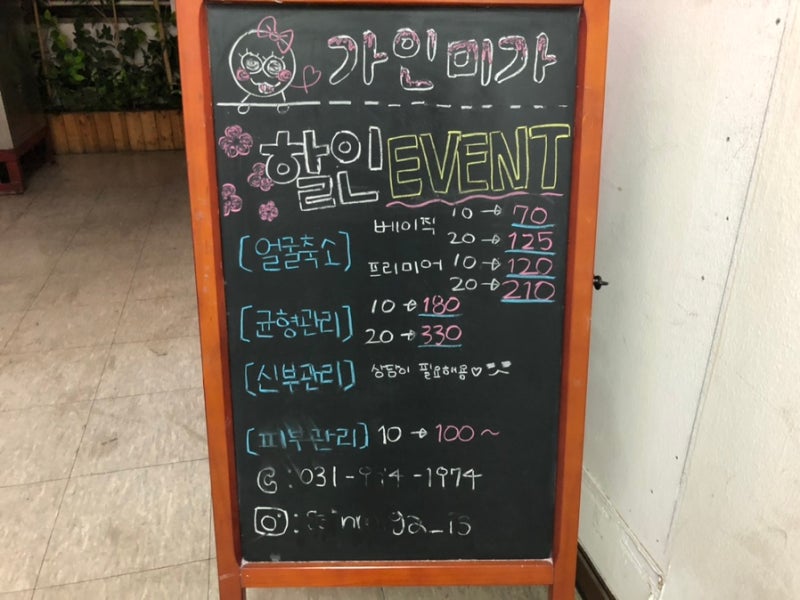 가인미가
할인 EVENT
[얼굴축소] 베이직 10→70
20→125
프리미어 10→120
20→210
[균형관리] 10→180
20→330
[신부관리] 상담이 필요해용♡
[피부관리] 10→100~
:031- -1974